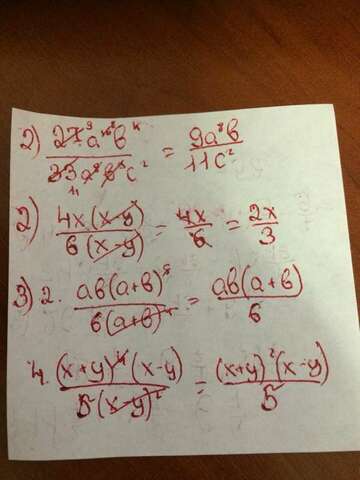 2) 27a¹⁶b⁴ / 33a⁸b³c² = 9a⁸b / 11c²
2) 4x(x-y) / 6(x-y) = 4x / 6 = 2x / 3
3) 2. ab(a+b)⁵ / 6(a+b)⁴ = ab(a+b) / 6
4. (x+y)⁴(x-y) / 5(x-y)² = (x+y)²(x-y) / 5